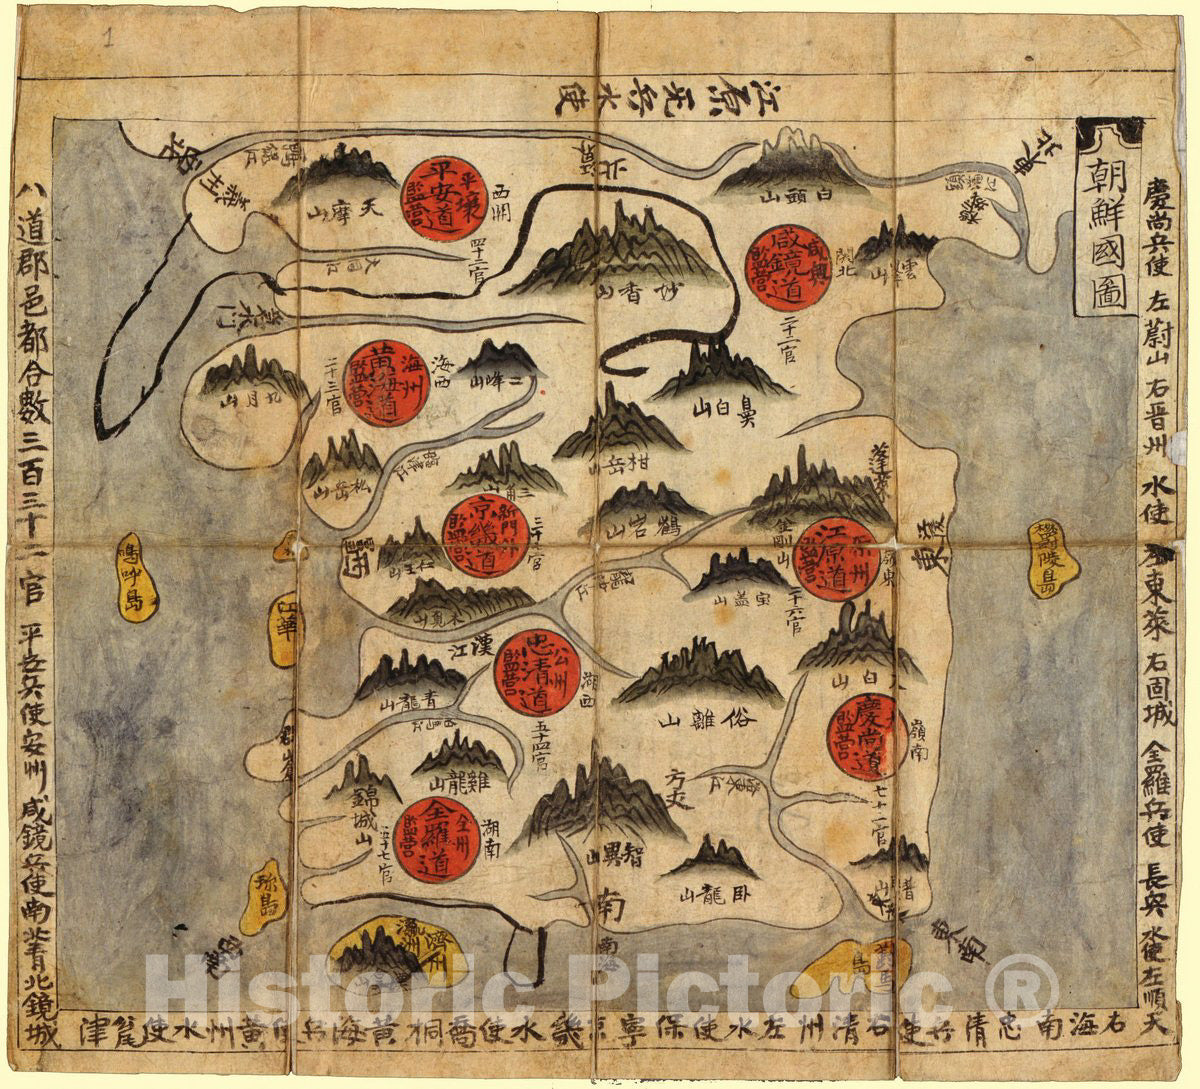 1
朝鮮國圖
江原无兵水使
慶尚兵使 左蔚山 右晋州 水使 左東萊 右固城 全羅兵使 長興 水使左順天
右海南 忠清兵使右清州左水使保寧京畿水使喬桐黃海兵使黃州水使瓮津
八道郡邑都合數三百三十二官 平安兵使安州咸鏡兵使南北青北鏡城
東北
白頭山
天摩山
平壤
平安道
監營
西關
四十二官
妙香山
咸興
咸鏡道
監營
關北
二十二官
海州
黃海道
監營
海西
二十三官
二峰山
九月山
鼻白山
松岳山
柑岳山
三角山
鶴岩山
蓬萊
金剛山
京畿道
監營
原州
江原道
監營
嶺東
二十六官
東
仁王山
木覓山
宝盖山
江華
漢江
公州
忠清道
監營
湖西
五十四官
青龍山
俗離山
太白山
慶尚道
監營
嶺南
七十一官
雞龍山
錦城山
全州
全羅道
監營
湖南
五十七官
方丈
智異山
臥龍山
南
東南
濟州
瀛洲
對馬島
Historic Pictoric ®